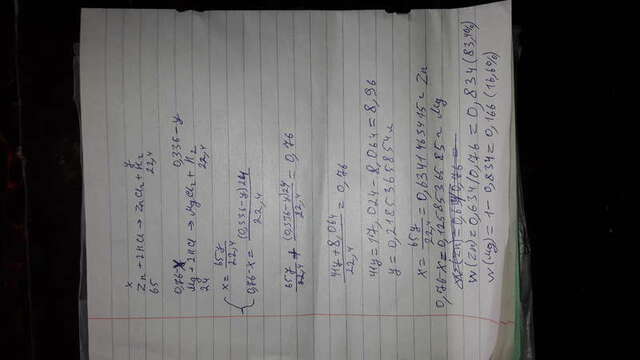 x y
Zn + 2HCl → ZnCl₂ + H₂
65 22,4
0,76-x 0,336-y
Mg + 2HCl → MgCl₂ + H₂
24 22,4
{ x = 65y/22,4
0,76-x = (0,336-y)24/22,4
65y/22,4 + (0,336-y)24/22,4 = 0,76
41y+8,064/22,4 = 0,76
41y = 17,024-8,064 = 8,96
y = 0,218536585 л
x = 65y/22,4 = 0,634146341 г Zn
0,76-x = 0,1258536585 г Mg
W(Zn) = 0,634/0,76 = 0,834 (83,4%)
W(Mg) = 1-0,834 = 0,166 (16,6%)